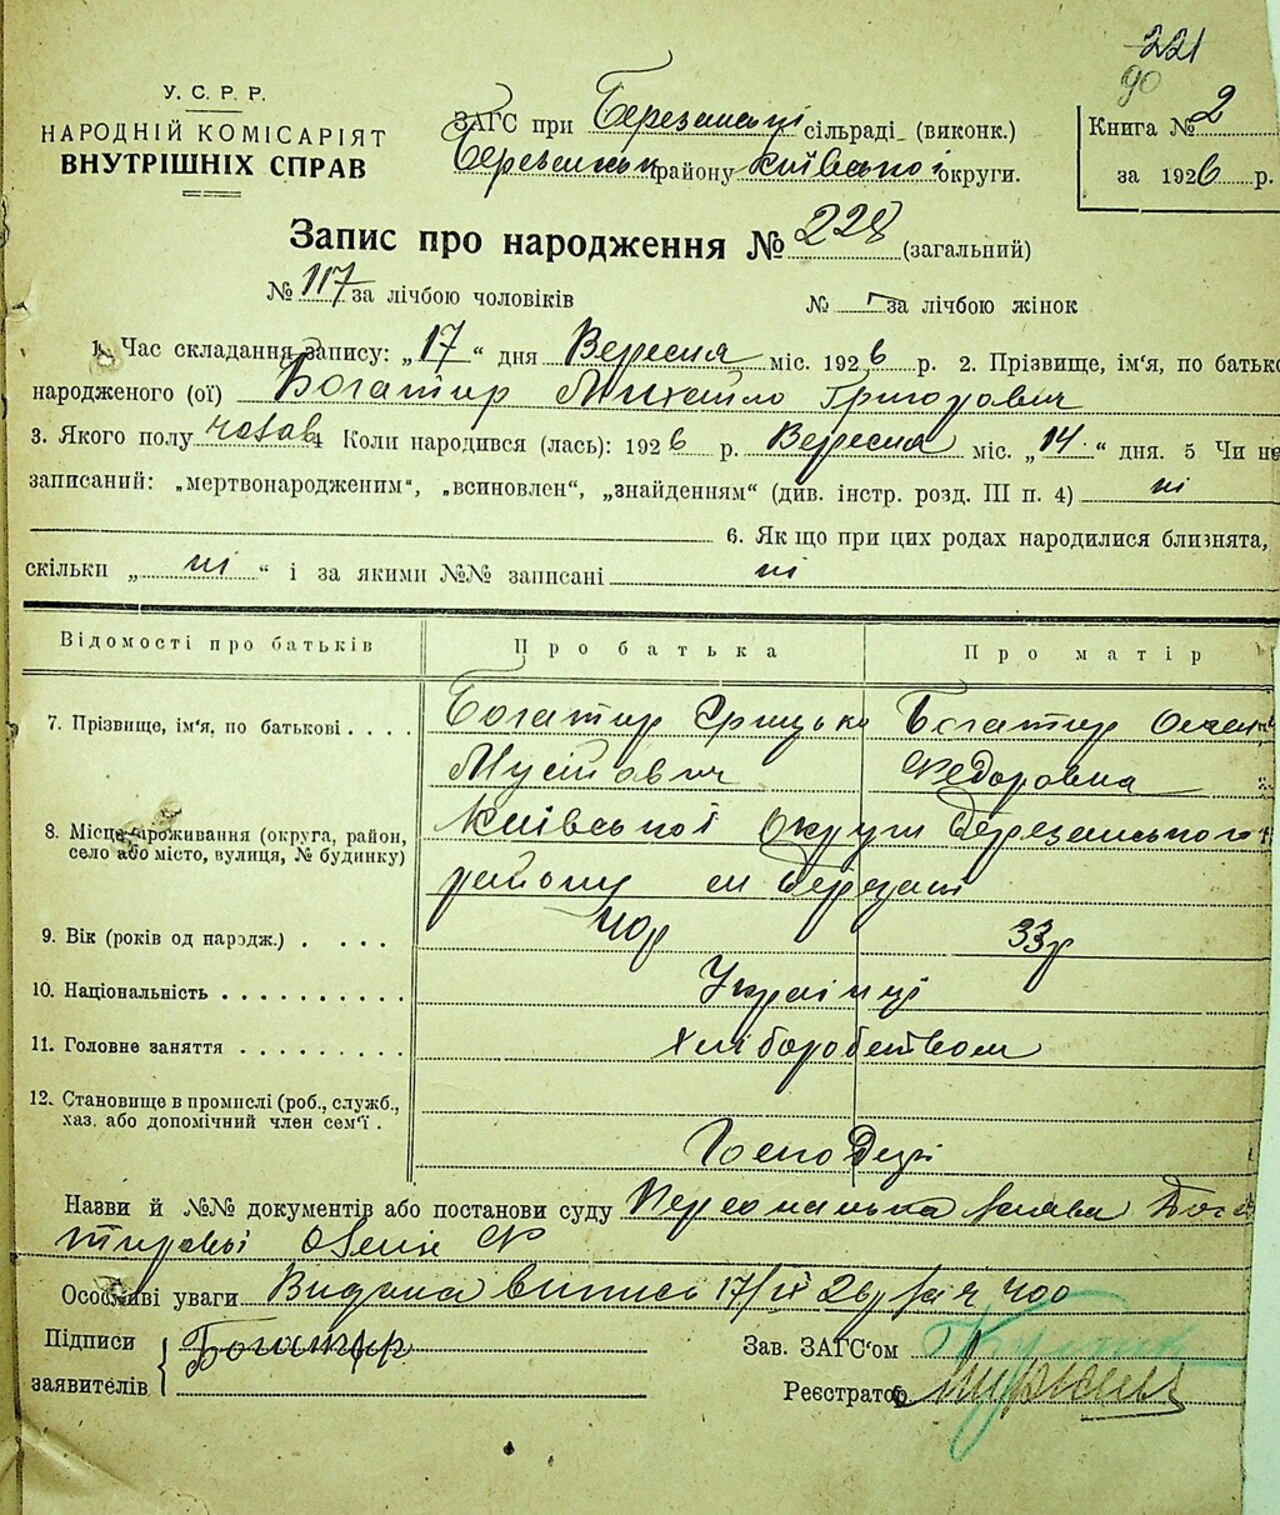 221
90
У. С. Р. Р.
НАРОДНІЙ КОМІСАРІЯТ
ВНУТРІШНІХ СПРАВ
ЗАГС при Березанські сільраді (виконк.)
Березанськ району Київської округи.
Книга № 2
за 1926 р.
Запис про народження № 228 (загальний)
№ 117 за лічбою чоловіків № - за лічбою жінок
1. Час складання запису: „17“ дня Вересня міс. 1926 р. 2. Прізвище, ім‘я, по батько
народженого (ої) Богатир Михайло Григорович
3. Якого полу 4 Коли народився (лась): 1926 р. Вересня міс. „14“ дня. 5 Чи не
записаний: „мертвонародженим“, „всиновлен“, „знайденням“ (див. інстр. розд. III п. 4) ні
6. Як що при цих родах народилися близнята,
скільки „ ні “ і за якими №№ записані ні
Відомості про батьків Про батька Про матір
7. Прізвище, ім‘я, по батькові . . . . Богатир Грицько Богатир
Мусійович Федоровна
8. Місце проживання (округа, район, Київської Округи Березанського
село або місто, вулиця, № будинку) району м Березані
9. Вік (років од народж.) . . . . 40р 33р
10. Національність . . . . . . . . . . Українці
11. Головне заняття . . . . . . . . . Хліборобством
12. Становище в промислі (роб., служб.,
хаз. або допомічний член сем‘ї .
Господарі
Назви й №№ документів або постанови суду Персональна заява Бога
тирьової
Особливі уваги Видана випись 17/IX 26р за № 400
Підписи Богатир
заявителів
Зав. ЗАГС‘ом
Реєстратор